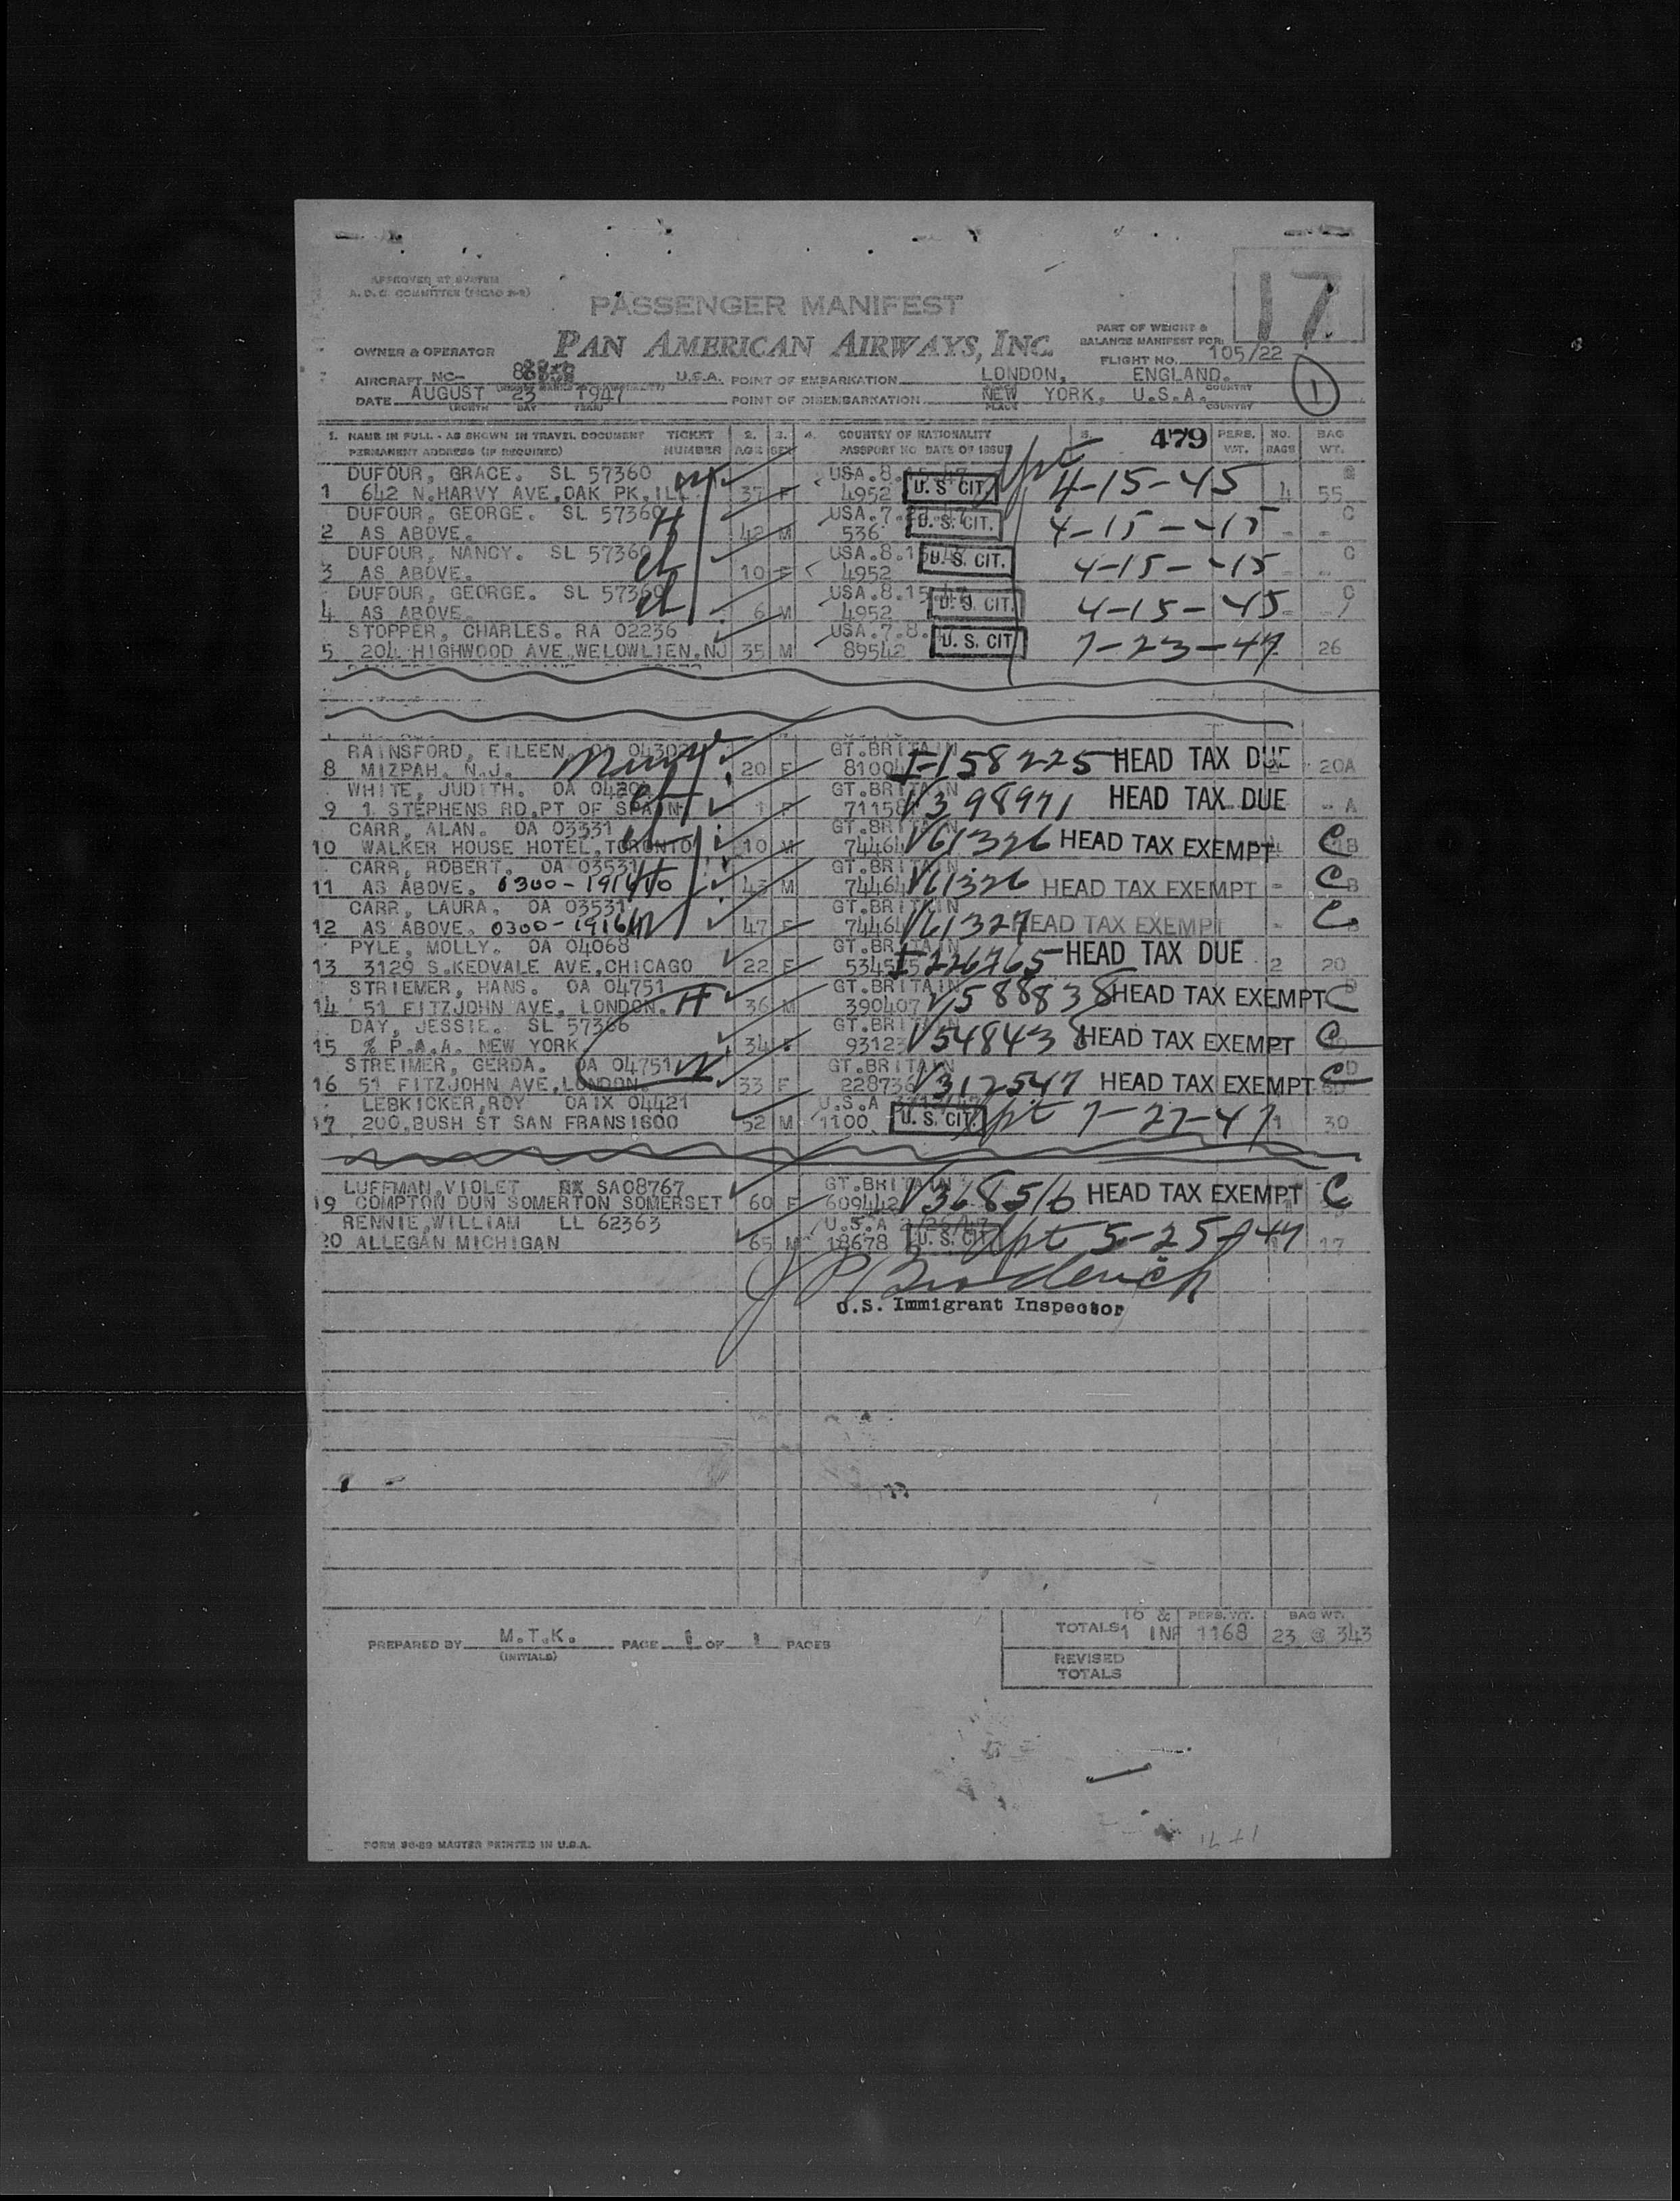 17
PASSENGER MANIFEST
PAN AMERICAN AIRWAYS, INC.
PART OF WEIGHT &
BALANCE MANIFEST FOR:
OWNER & OPERATOR
FLIGHT NO. 105/22
AIRCRAFT NC- U.S.A. POINT OF EMBARKATION LONDON, ENGLAND. 1
DATE AUGUST 23 1947 POINT OF DISEMBARKATION NEW YORK, U.S.A.
(MONTH DAY YEAR) PLACE COUNTRY
1. NAME IN FULL - AS SHOWN IN TRAVEL DOCUMENT TICKET 2. 3. 4. COUNTRY OF NATIONALITY 5. 479 PERS. NO. BAG
PERMANENT ADDRESS (IF REQUIRED) NUMBER AGE SEX PASSPORT NO DATE OF ISSUE WT. BAGS WT.
DUFOUR, GRACE. SL 57360 USA.8. ppt
1 642 N.HARVY AVE,OAK PK,ILL. 37 F 4952 U. S CIT. 4-15-45 4 55
DUFOUR, GEORGE. SL 57360 USA.7. C
2 AS ABOVE. H 42 M 536 U. S. CIT. 4-15-45 - -
DUFOUR, NANCY. SL 57360 USA.8.15 C
3 AS ABOVE. ch 10 F 4952 U. S. CIT. 4-15-45
DUFOUR, GEORGE. SL 57360 USA.8.15.47 C
4 AS ABOVE. ch 6 M 4952 U. S. CIT. 4-15-45
STOPPER, CHARLES. RA 02236 USA.7.8.
5 204 HIGHWOOD AVE,WELOWLIEN.NJ 35 M 89542 U. S. CIT. 7-23-47 26
RAINSFORD, EILEEN. OA 04302 GT.BRITAIN
8 MIZPAH. N.J. 20 F 8100 I-158225 HEAD TAX DUE 20A
WHITE, JUDITH. OA GT.BRITAIN
9 1 STEPHENS RD,PT OF SPAIN 1 F 7115 V398971 HEAD TAX DUE - A
CARR, ALAN. OA 03531 GT.BRITAIN
10 WALKER HOUSE HOTEL,TORONTO 10 M 7446 V61326 HEAD TAX EXEMPT C B
CARR, ROBERT. OA 03531 GT.BRITAIN
11 AS ABOVE. 0300-1916 43 M 7446 V61326 HEAD TAX EXEMPT - C B
CARR, LAURA. OA 03531 GT.BRITAIN
12 AS ABOVE. 0300-1916 W 47 F 7446 V61327 HEAD TAX EXEMPT - C
PYLE, MOLLY. OA 04068 GT.BRITAIN
13 3129 S.KEDVALE AVE,CHICAGO 22 F 5345 I-226765 HEAD TAX DUE 2 20
STRIEMER, HANS. OA 04751 GT.BRITAIN D
14 51 FITZJOHN AVE, LONDON. H 36 M 390407 V588838 HEAD TAX EXEMPT C
DAY, JESSIE. SL 57366 GT.BRITAIN
15 % P.A.A. NEW YORK 34 F 9312 V548438 HEAD TAX EXEMPT C
STREIMER, GERDA. OA 04751 W GT.BRITAIN D
16 51 FITZJOHN AVE,LONDON. 33 F 228736 V312547 HEAD TAX EXEMPT C
LEBKICKER,ROY OAIX 04421 U.S.A
17 200,BUSH ST SAN FRANSISOO 52 M 1100 U. S. CIT. ppt 7-27-47 1 30
LUFFMAN,VIOLET SA08767 GT.BRITAIN
19 COMPTON DUN SOMERTON SOMERSET 60 F 609442 V368516 HEAD TAX EXEMPT C
RENNIE,WILLIAM LL 62363 U.S.A
20 ALLEGAN MICHIGAN 65 M 18678 U. S. CIT. ppt 5-25-47 17
J P Broderick
U.S. Immigrant Inspector
TOTALS 16 & 1 INF PERS. WT. 1168 BAG WT. 23 @ 343
PREPARED BY M.T.K. PAGE 1 OF 1 PAGES
(INITIALS)
REVISED
TOTALS
16+1